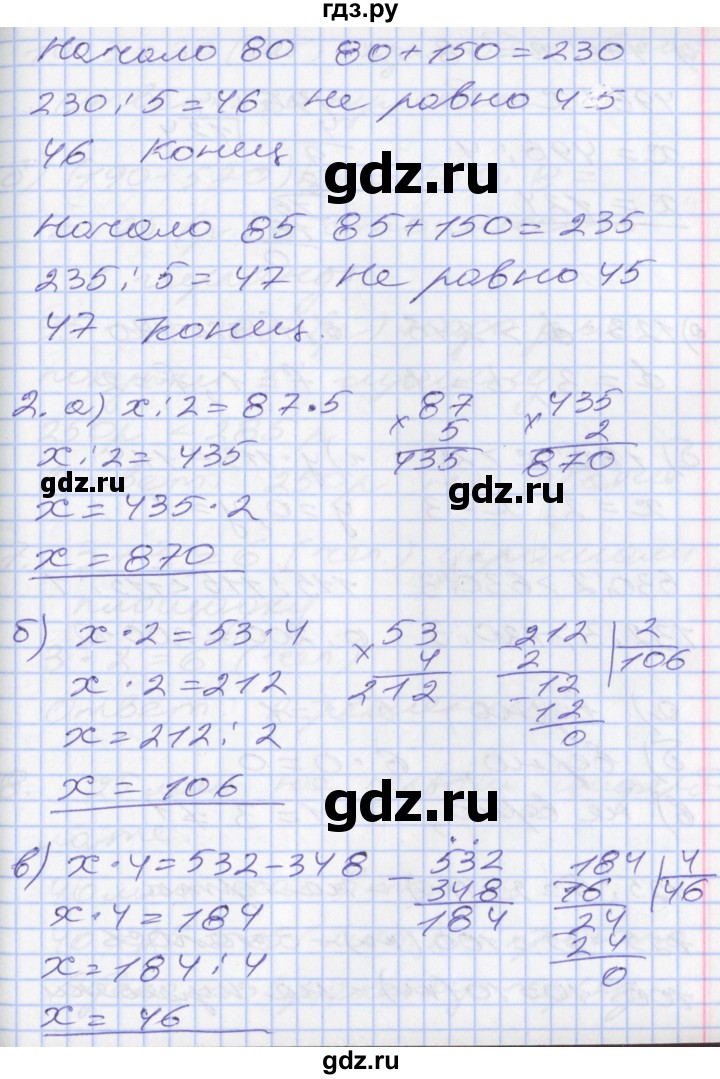 гдз.ру
Начало 80 80+150=230
230:5=46 Не равно 45
46 Конец
gdz.ru
Начало 85 85+150=235
235:5=47 Не равно 45
47 Конец.
2. а) x:2=87·5 × 87 × 435
x:2=435 5 2
gdz.ru 435 870
x=435·2 gdz.ru
x=870
б) x·2=53·4 × 53 - 212 | 2
x·2=212 4 2 106
212 - 12
x=212:2 12
0
x=106
gdz.ru
в) x·4=532-348 - 532 - 184 | 4
348 16 46
x·4=184 184 24
x=184:4 24
0
x=46
gdz.ru